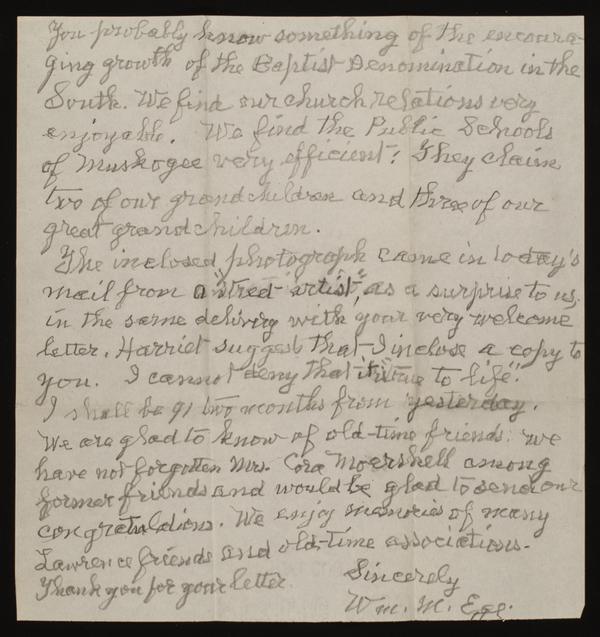 You probably know something of the encoura-
ging growth of the Baptist Denomination in the
South. We find our church relations very
enjoyable. We find the Public Schools
of Muskogee very efficient: They claim
two of our grandchildren and three of our
great grandchildren.
The inclosed photograph came in today's
mail from a "stret artist", as a surprise to us,
in the same deliviry with your very welcome
letter. Harriet suggests that I inclose a copy to
you. I cannot deny that it is "true to life".
I shall be 91 two months from yesterday.
We are glad to know of old-time friends: we
have not forgotten Mrs. Cora Moershell among
former friends and would be glad to send our
congratulations. We enjoy memories of many
Lawrence friends and old-time associations.
Thank you for your letter.
Sincerely
Wm. M.